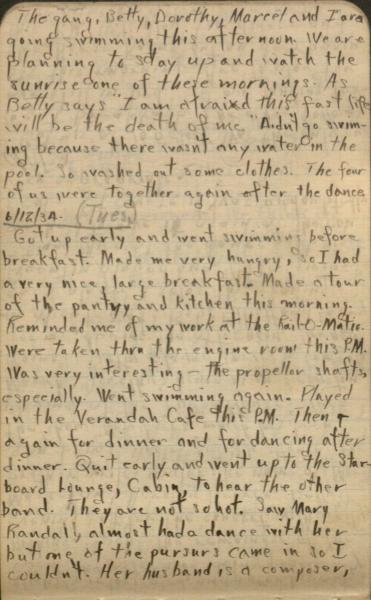 The gang, Betty, Dorothy, Marcel and I are
going swimming this afternoon. We are
planning to stay up and watch the
sunrise one of these mornings. As
Betty says "I am afraid this fast life
will be the death of me." Didn't go swim-
ing because there wasn't any water in the
pool. So washed out some clothes. The four
of us were together again after the dance
6/12/34. (Tues.)
Got up early and went swimming before
breakfast. Made me very hungry, so I had
a very nice, large breakfast. Made a tour
of the pantry, and kitchen this morning.
Reminded me of my work at the Rail-O-Matic.
Were taken thru the engine room this P.M.
Was very interesting - the propellor shafts,
especially. Went swimming again. Played
in the Verandah Cafe this P.M. Then
again for dinner and for dancing after
dinner. Quit early and went up to the Star-
board Lounge, Cabin, to hear the other
band. They are not so hot. Saw Mary
Randall, almost had a dance with her
but one of the pursurs came in so I
couldn't. Her husband is a composer,